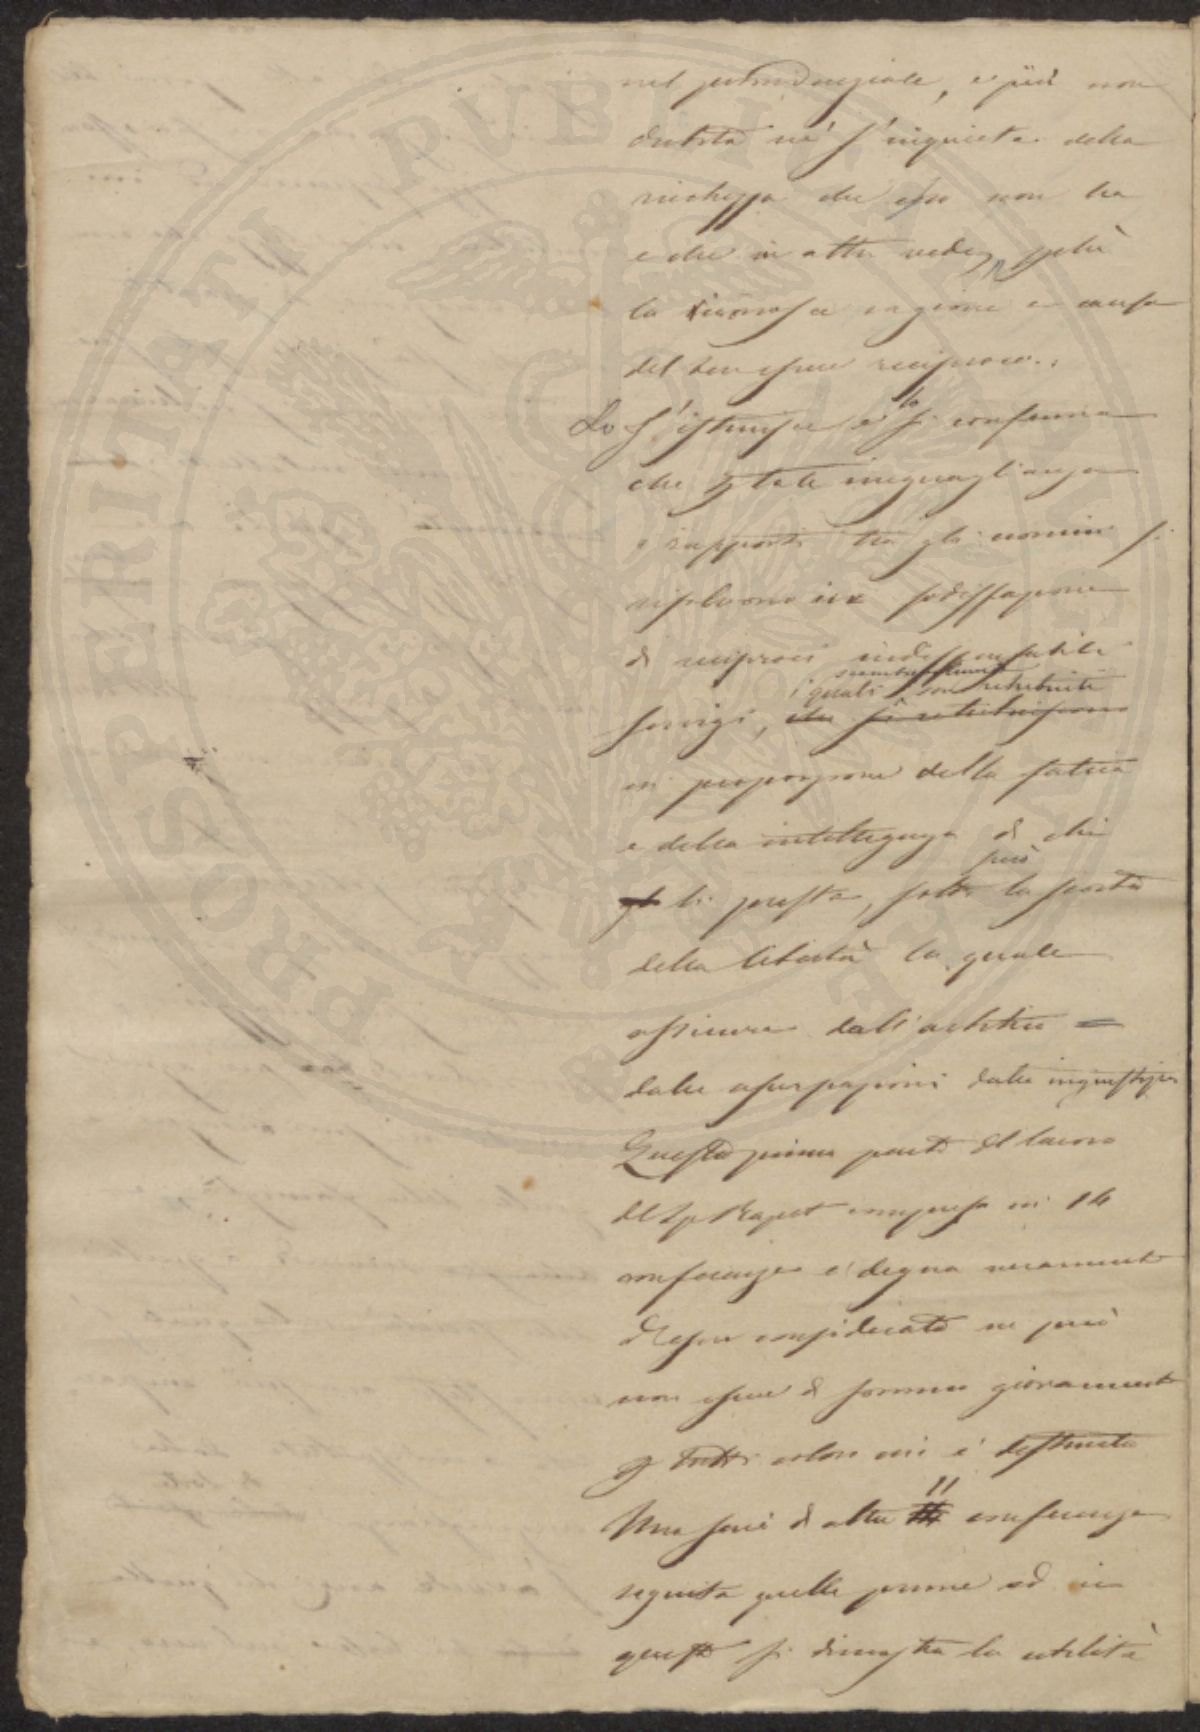 nel privilegiato, e più non
dubita nè s'inquieta della
ricchezza che esso non ha
e che in altri vede, perchè
la riconosce cagione e causa
del ben essere reciproco.
Lo s'istruisce e lo si conferma
che per tale ineguaglianza
i rapporti tra gli uomini si
risolvono in sodisfazione
di reciproci indispensabili
scambievolmente
i quali son retribuiti
servigi, che si retribuiscono
in proporzione della fatica
e della intelligenza di chi
però
gli li presta, sotto la scorta
della libertà la quale
assicura dall'arbitrio
dalle usurpazioni dalle ingiustizie
Questa prima parte del lavoro
del Sr Rapet compresa in 14
conferenze è degna veramente
di esser considerata ne può
non essere di sommo giovamento
per tutti coloro cui è destinata
Una serie di altre 11 conferenze
seguita quelle prime ed in
queste si dimostra la utilità
PROSPERITATI PUBLICAE